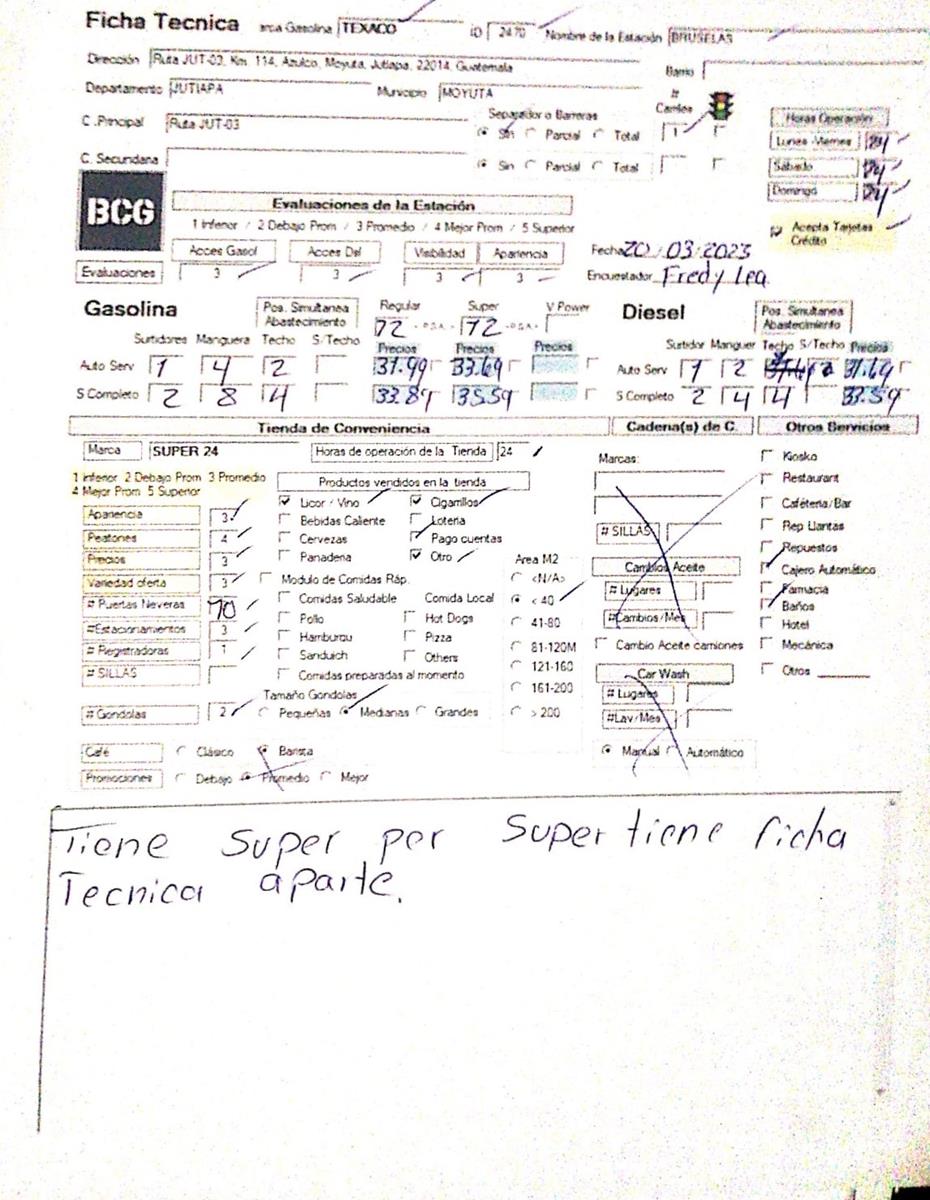 Ficha Tecnica arca Gasolina TEXACO ID 2470 Nombre de la Estación BRUSELAS
Dirección Ruta JUT-03, Km. 114, Azulco, Moyuta, Jutiapa, 22014, Guatemala Barrio
Departamento JUTIAPA Municipio MOYUTA # Carriles
C .Principal Ruta JUT-03 Separador o Barreras Sin Parcial Total 1 Horas Operación
Lunes -Viernes 24
C. Secundaria Sin Parcial Total Sábado 24
Domingo 24
BCG Evaluaciones de la Estación
1 Inferior / 2 Debajo Prom / 3 Promedio / 4 Mejor Prom / 5 Superior Acepta Tarjetas Crédito
Acces Gasol Acces Dsl Visibilidad Apariencia Fecha 20/03/2023
Evaluaciones 3 3 3 3 Encuestador Fredy Lea
Gasolina Pos. Simultanea Abastecimiento Regular Super V Power Diesel Pos. Simultanea Abastecimiento
72 72
Surtidores Manguera Techo S/Techo Precios Precios Precios Surtidor Manguer Techo S/Techo Precios
Auto Serv 1 4 2 31.99 33.69 Auto Serv 1 2 31.69
S Completo 2 8 4 33.89 35.59 S Completo 2 4 4 33.59
Tienda de Conveniencia Cadena(s) de C. Otros Servicios
Marca SUPER 24 Horas de operación de la Tienda 24 Marcas: Kiosko
1 Inferior 2 Debajo Prom 3 Promedio Productos vendidos en la tienda Restaurant
4 Mejor Prom 5 Superior
Apariencia 3 Licor / Vino Cigarrillos Cafétería/Bar
Peatones 4 Bebidas Caliente Loteria # SILLAS Rep Llantas
Precios 3 Cervezas Pago cuentas Repuestos
Variedad oferta 3 Panaderia Otro Area M2 Cambios Aceite Cajero Automático
Modulo de Comidas Ráp. <N/A> # Lugares Farmacia
# Puertas Neveras 10 Comidas Saludable Comida Local < 40 Baños
#Estacionamientos 3 Pollo Hot Dogs 41-80 #Cambios/Mes Hotel
# Registradoras 1 Hamburgu Pizza 81-120M Cambio Aceite camiones Mecánica
# SILLAS Sandwich Others 121-160 Car Wash Otros
Comidas preparadas al momento 161-200 # Lugares
# Gondolas 2 Tamaño Gondolas Pequeñas Medianas Grandes > 200 #Lav/Mes
Café Clásico Barista Manual Automático
Promociones Debajo Promedio Mejor
Tiene Super per Super tiene ficha
Tecnica aparte.